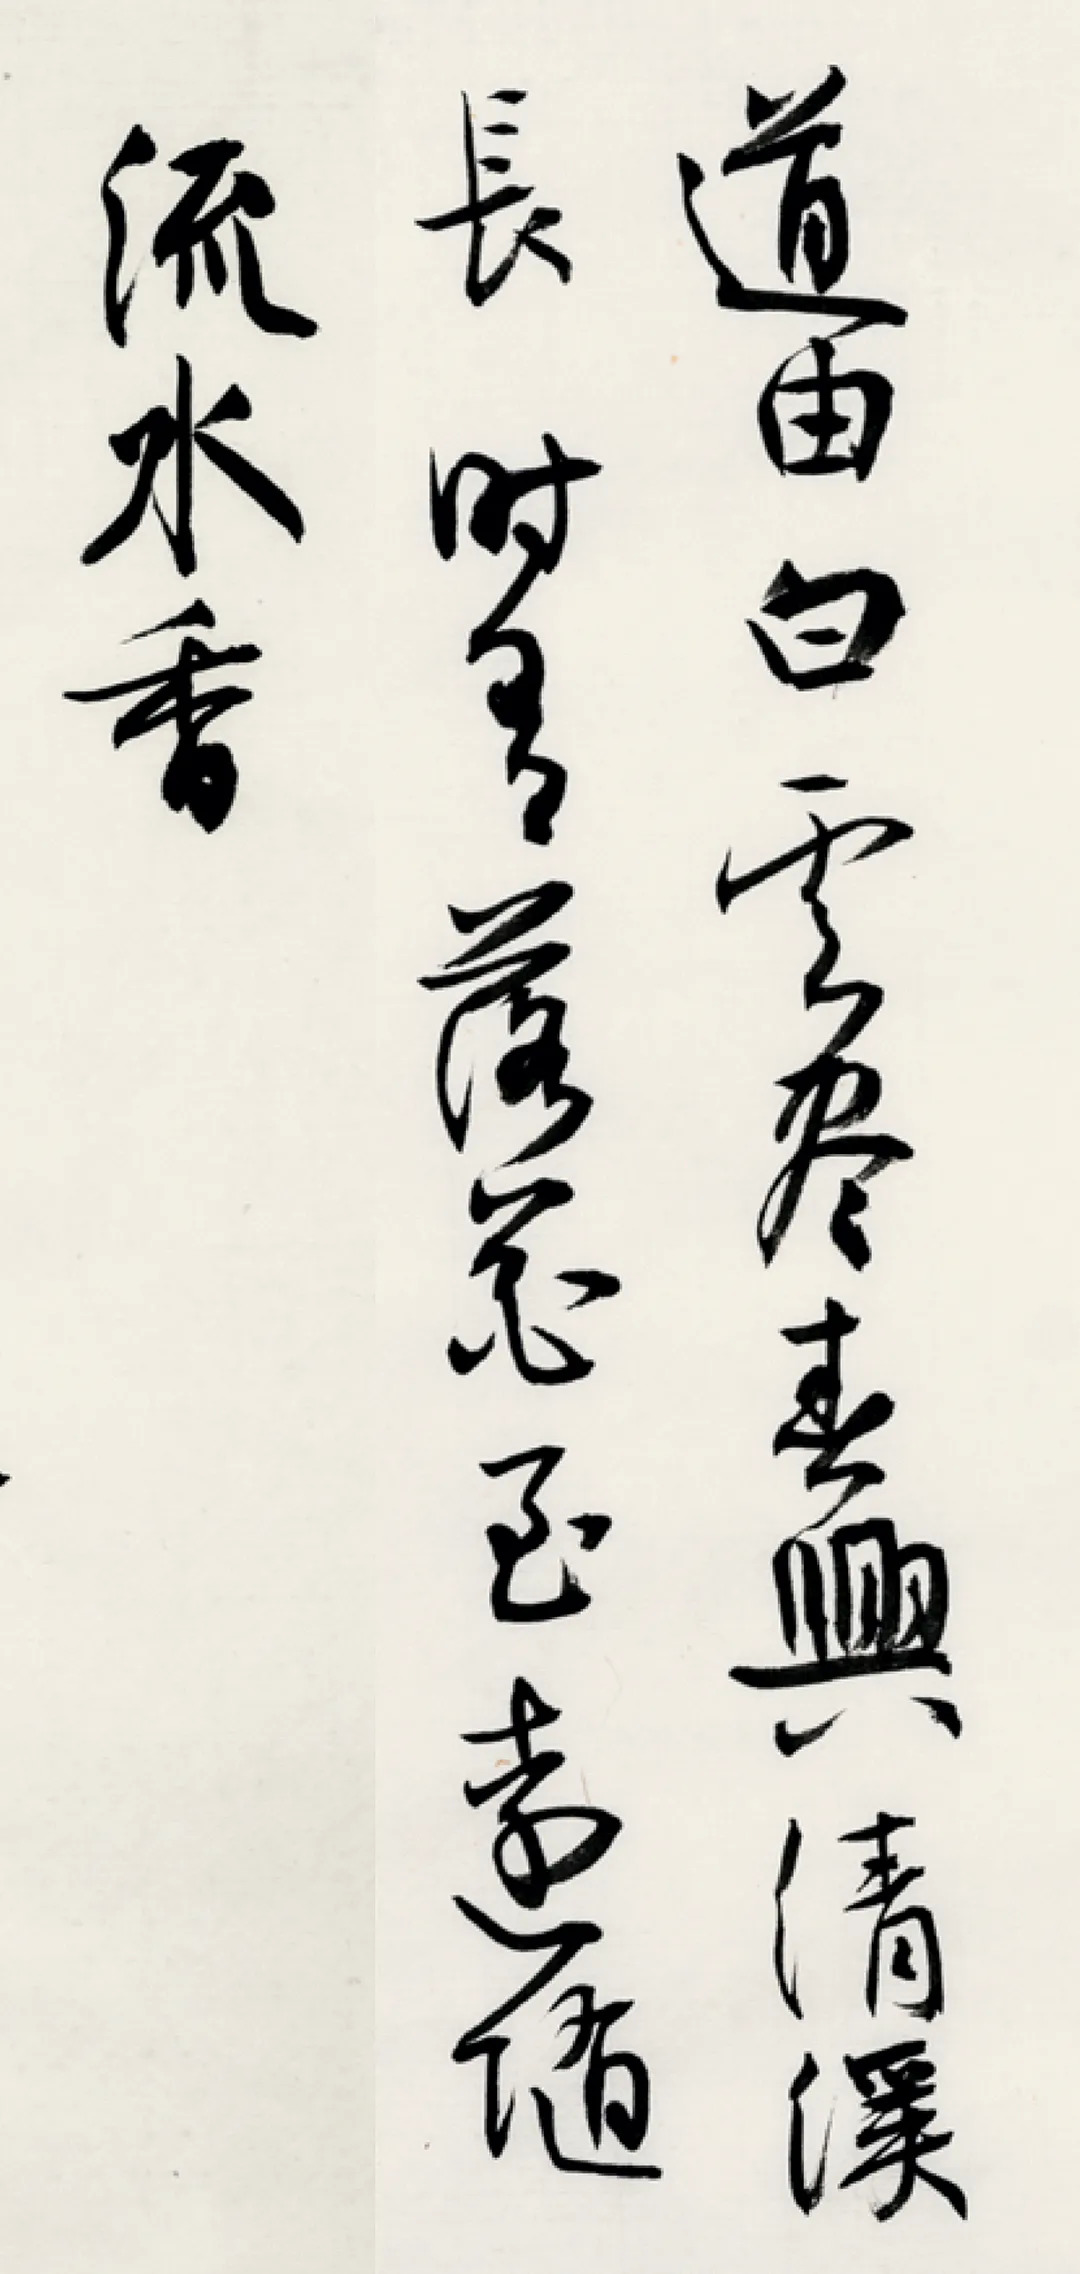 道由白雲盡春與清溪
長時有落花至遠隨
流水香